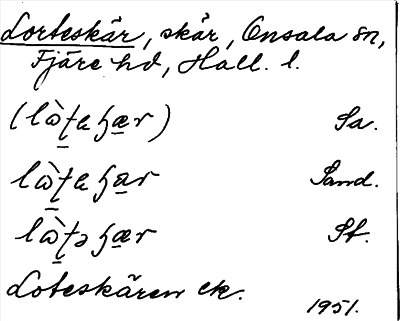 Lorteskär, skär, Onsala sn,
Fjäre hd, Hall. l.
(lὼ̱ʈaɧæ̱r) Sa.
lὼ̱ʈaɧa̱r Sand.
lὼ̱ʈəɧæ̱r St.
Loteskären ek.
1951.